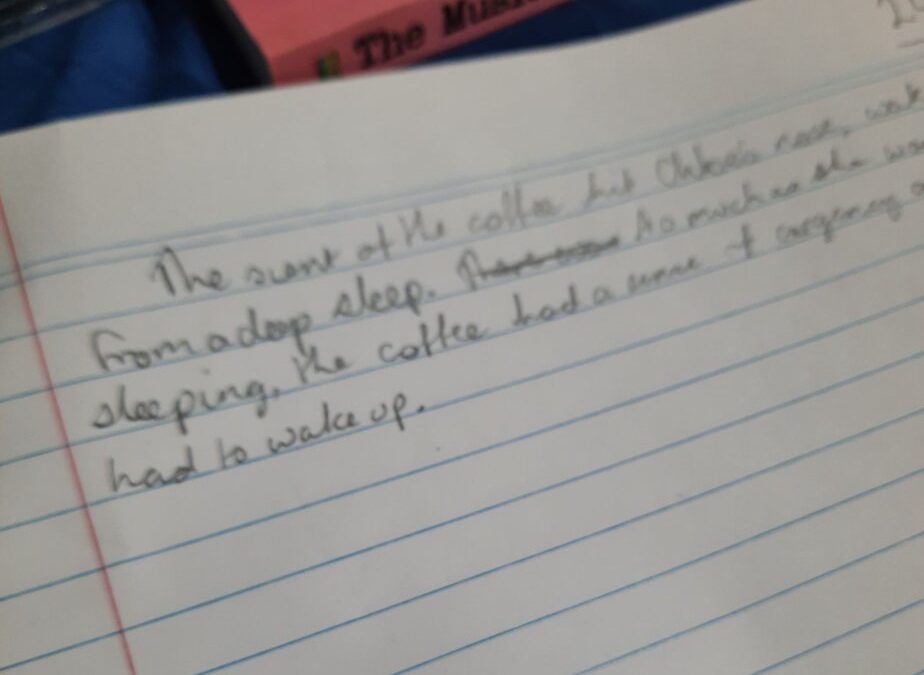 The Musi
The scent of the coffee hit nose, wak
from a deep sleep. As much as she wa
sleeping, the coffee had a sense of urgency
had to wake up.